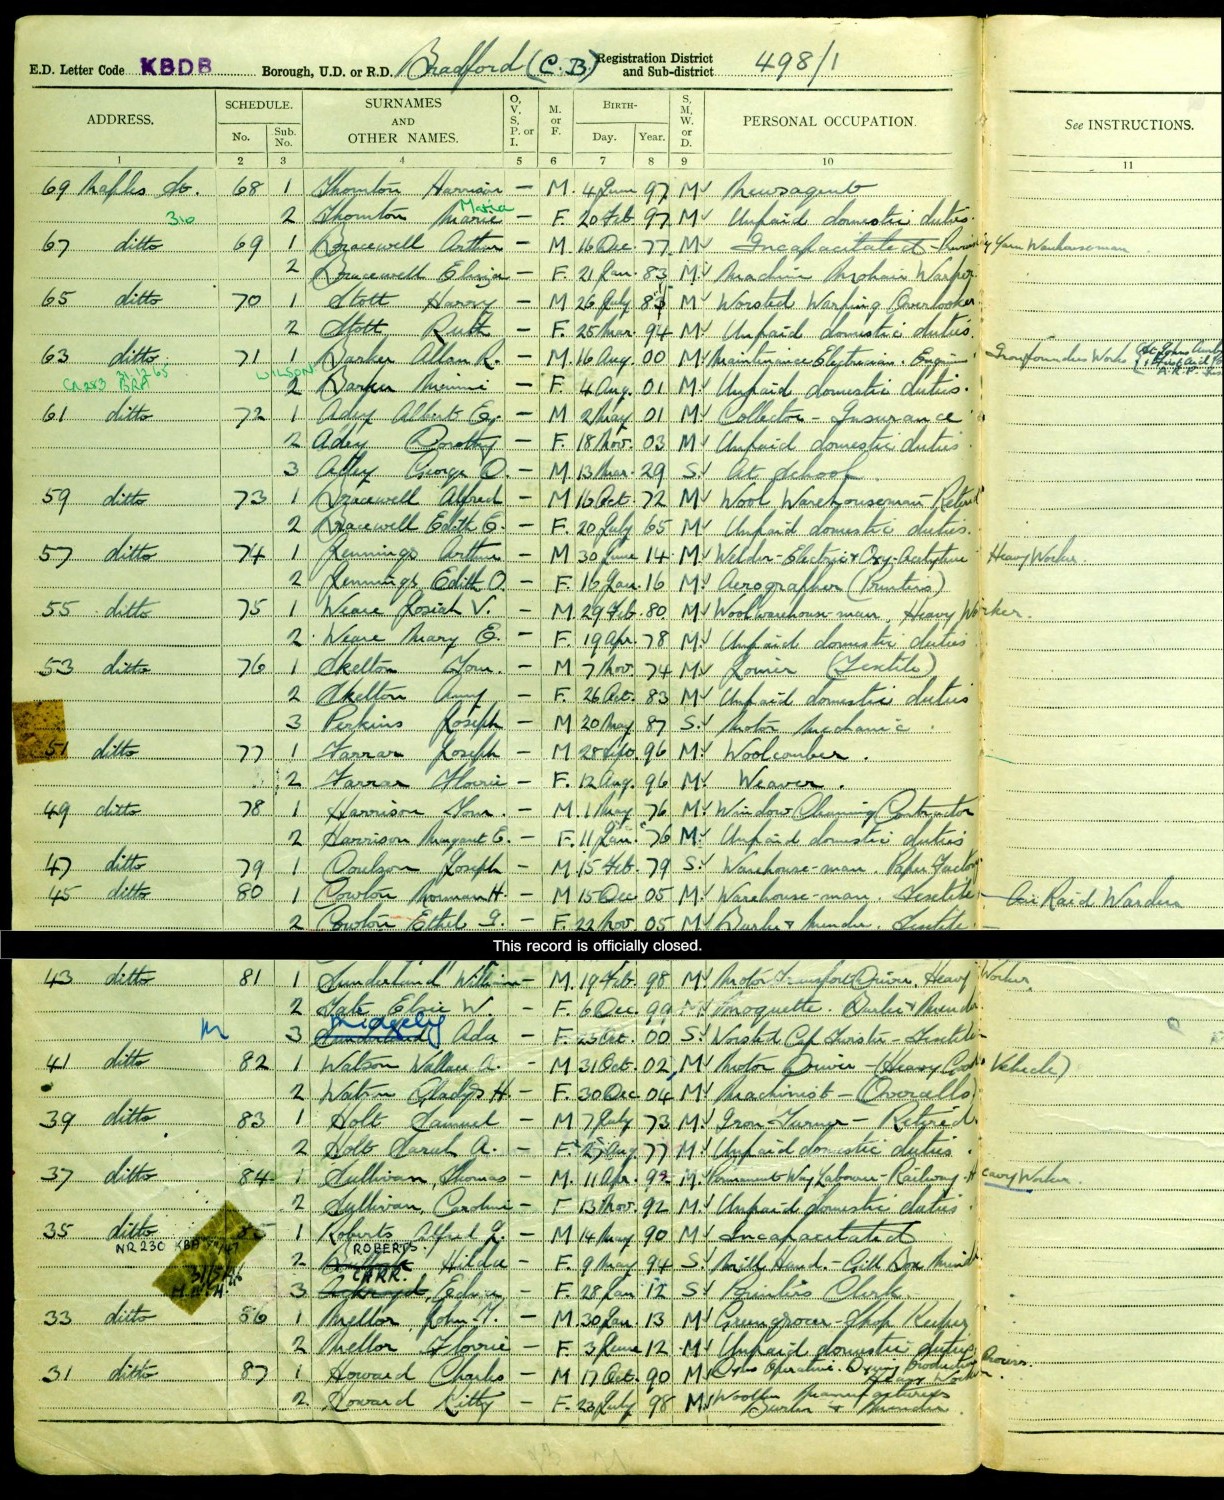 E.D. Letter Code KBDB Borough, U.D. or R.D. Bradford (C.B.) Registration District and Sub-district 498/1
ADDRESS. SCHEDULE. No. Sub. No. SURNAMES AND OTHER NAMES. O, V, S, P. or I. M. or F. BIRTH- Day. Year. S, M, W, or D. PERSONAL OCCUPATION. See INSTRUCTIONS.
1 2 3 4 5 6 7 8 9 10 11
69 Naples St. 68 1 Thornton Harrison – M. 4 June 97 M Newsagent
310 2 Thornton Marie Maria – F. 20 Feb 97 M Unpaid domestic duties.
67 ditto 69 1 Bracewell Arthur – M. 16 Dec. 77 M Incapacitated - Yarn Warehouseman
2 Bracewell Eliza – F. 21 Jan. 83 M Machine Mohair Warper
65 ditto 70 1 Stott Harry – M 26 July M Worsted Warping Overlooker
2 Stott Ruth – F. 25 Mar. 94 M Unpaid domestic duties.
63 ditto 71 1 Barker Allan R. – M. 16 Aug. 00 M Maintenance Electrician. Engineers Ironfoundries Works
CR283 BRA 21.12.65 WILSON 2 Barker Minnie – F. 4 Aug. 01 M Unpaid domestic duties.
61 ditto 72 1 Adey Albert E. – M 2 May 01 M Collector - Insurance
2 Adey Dorothy – F. 18 Nov. 03 M Unpaid domestic duties.
3 Adey George O. – M. 13 Mar. 29 S. At school
59 ditto 73 1 Bracewell Alfred – M 16 Oct. 72 M Wool Warehouseman - Retired
2 Bracewell Edith E. – F. 20 July 65 M Unpaid domestic duties.
57 ditto 74 1 Jennings Arthur – M 30 June 14 M Welder - Electric & Oxy-Acetylene Heavy Worker.
2 Jennings Edith O. – F. 16 Jan. 16 M Aerographer (Printers)
55 ditto 75 1 Weare Josiah V. – M. 29 Feb. 80 M Wool warehouse-man. Heavy Worker.
2 Weare Mary E. – F. 19 Apr. 78 M Unpaid domestic duties
53 ditto 76 1 Skelton Tom. – M 7 Nov. 74 M Joiner (Textile)
2 Skelton Amy – F. 26 Oct. 83 M Unpaid domestic duties
3 Perkins Joseph – M 20 May 87 S. Motor Mechanic.
51 ditto 77 1 Farrar Joseph – M 28 Sep. 96 M Woolcomber.
2 Farrar Florrie – F. 12 Aug. 96 M Weaver.
49 ditto 78 1 Harrison Tom. – M. 1 May 76 M Window Cleaning Contractor
2 Harrison Margaret E. – F. 11 Jan. 76 M Unpaid domestic duties
47 ditto 79 1 Coulson Joseph – M. 15 Feb. 79 S. Warehouse-man. Paper Factory
45 ditto 80 1 Cowton Norman H. – M 15 Dec 05 M Warehouse-man. Textile – Air Raid Warden
2 Cowton Ethel G. – F. 22 Nov. 05 M Burler & Mender. Textile –
This record is officially closed.
43 ditto 81 1 Sunderland William – M. 19 Feb. 98 M Motor Transport Driver. Heavy Worker.
2 Tate Elsie W. – F. 6 Dec. 99 M Moquette Burler & Mender
M 3 Sunderland Ridgely Ada – F. 25 Oct. 00 S. Worsted Cap Twister - Textile –
41 ditto 82 1 Watson Wallace A. – M 31 Oct. 02 M Motor Driver - (Heavy Goods Vehicle)
2 Watson Gladys H. – F. 30 Dec 04 M Machinist - (Overalls)
39 ditto 83 1 Holt Samuel – M 7 July 73 M Iron-Turner - Retired.
2 Holt Sarah A. – F. 25 Aug. 77 M Unpaid domestic duties.
37 ditto 84 1 Sullivan, Thomas – M. 11 Apr. 92 M Permanent Way Labourer - Railway - Heavy Worker.
2 Sullivan, Caroline – F 13 Nov. 92 M. Unpaid domestic duties.
35 ditto 85 1 Roberts Alfred – M 14 May 90 M Incapacitated
NR230 KBB ROBERTS. 2 Hilda – F. 9 May 94 S. Mill Hand - Gill Box Minder
CARR. 3 Ackroyd, Edna – F. 28 Jan 12 S. Printers Clerk
33 ditto 86 1 Mellor John – M. 30 Jan. 13 M Greengrocer - Shop Keeper
2 Mellor Florrie – F. 3 June 12 M Unpaid domestic duties
31 ditto 87 1 Howard Charles – M 17 Oct. 90 M Operative. Process. Heavy Worker.
2 Howard Kitty – F. 23 July 98 M Woollen Manufacturers Burler & Mender